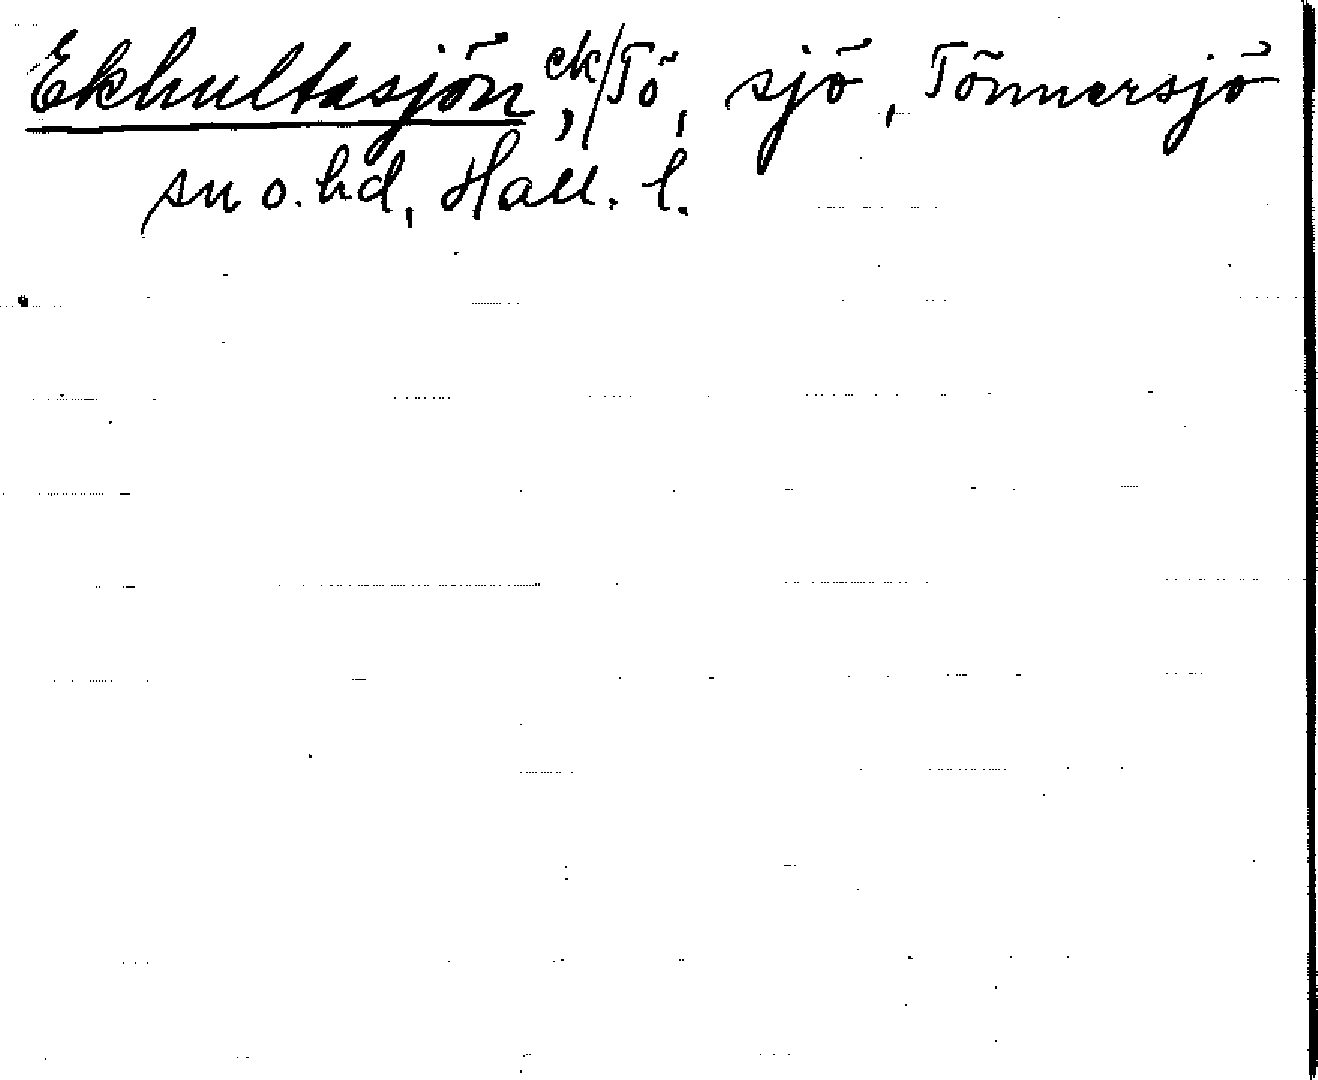 Ekhultasjön, ek/Tö, sjö, Tönnersjö
sn o. hd, Hall. l.